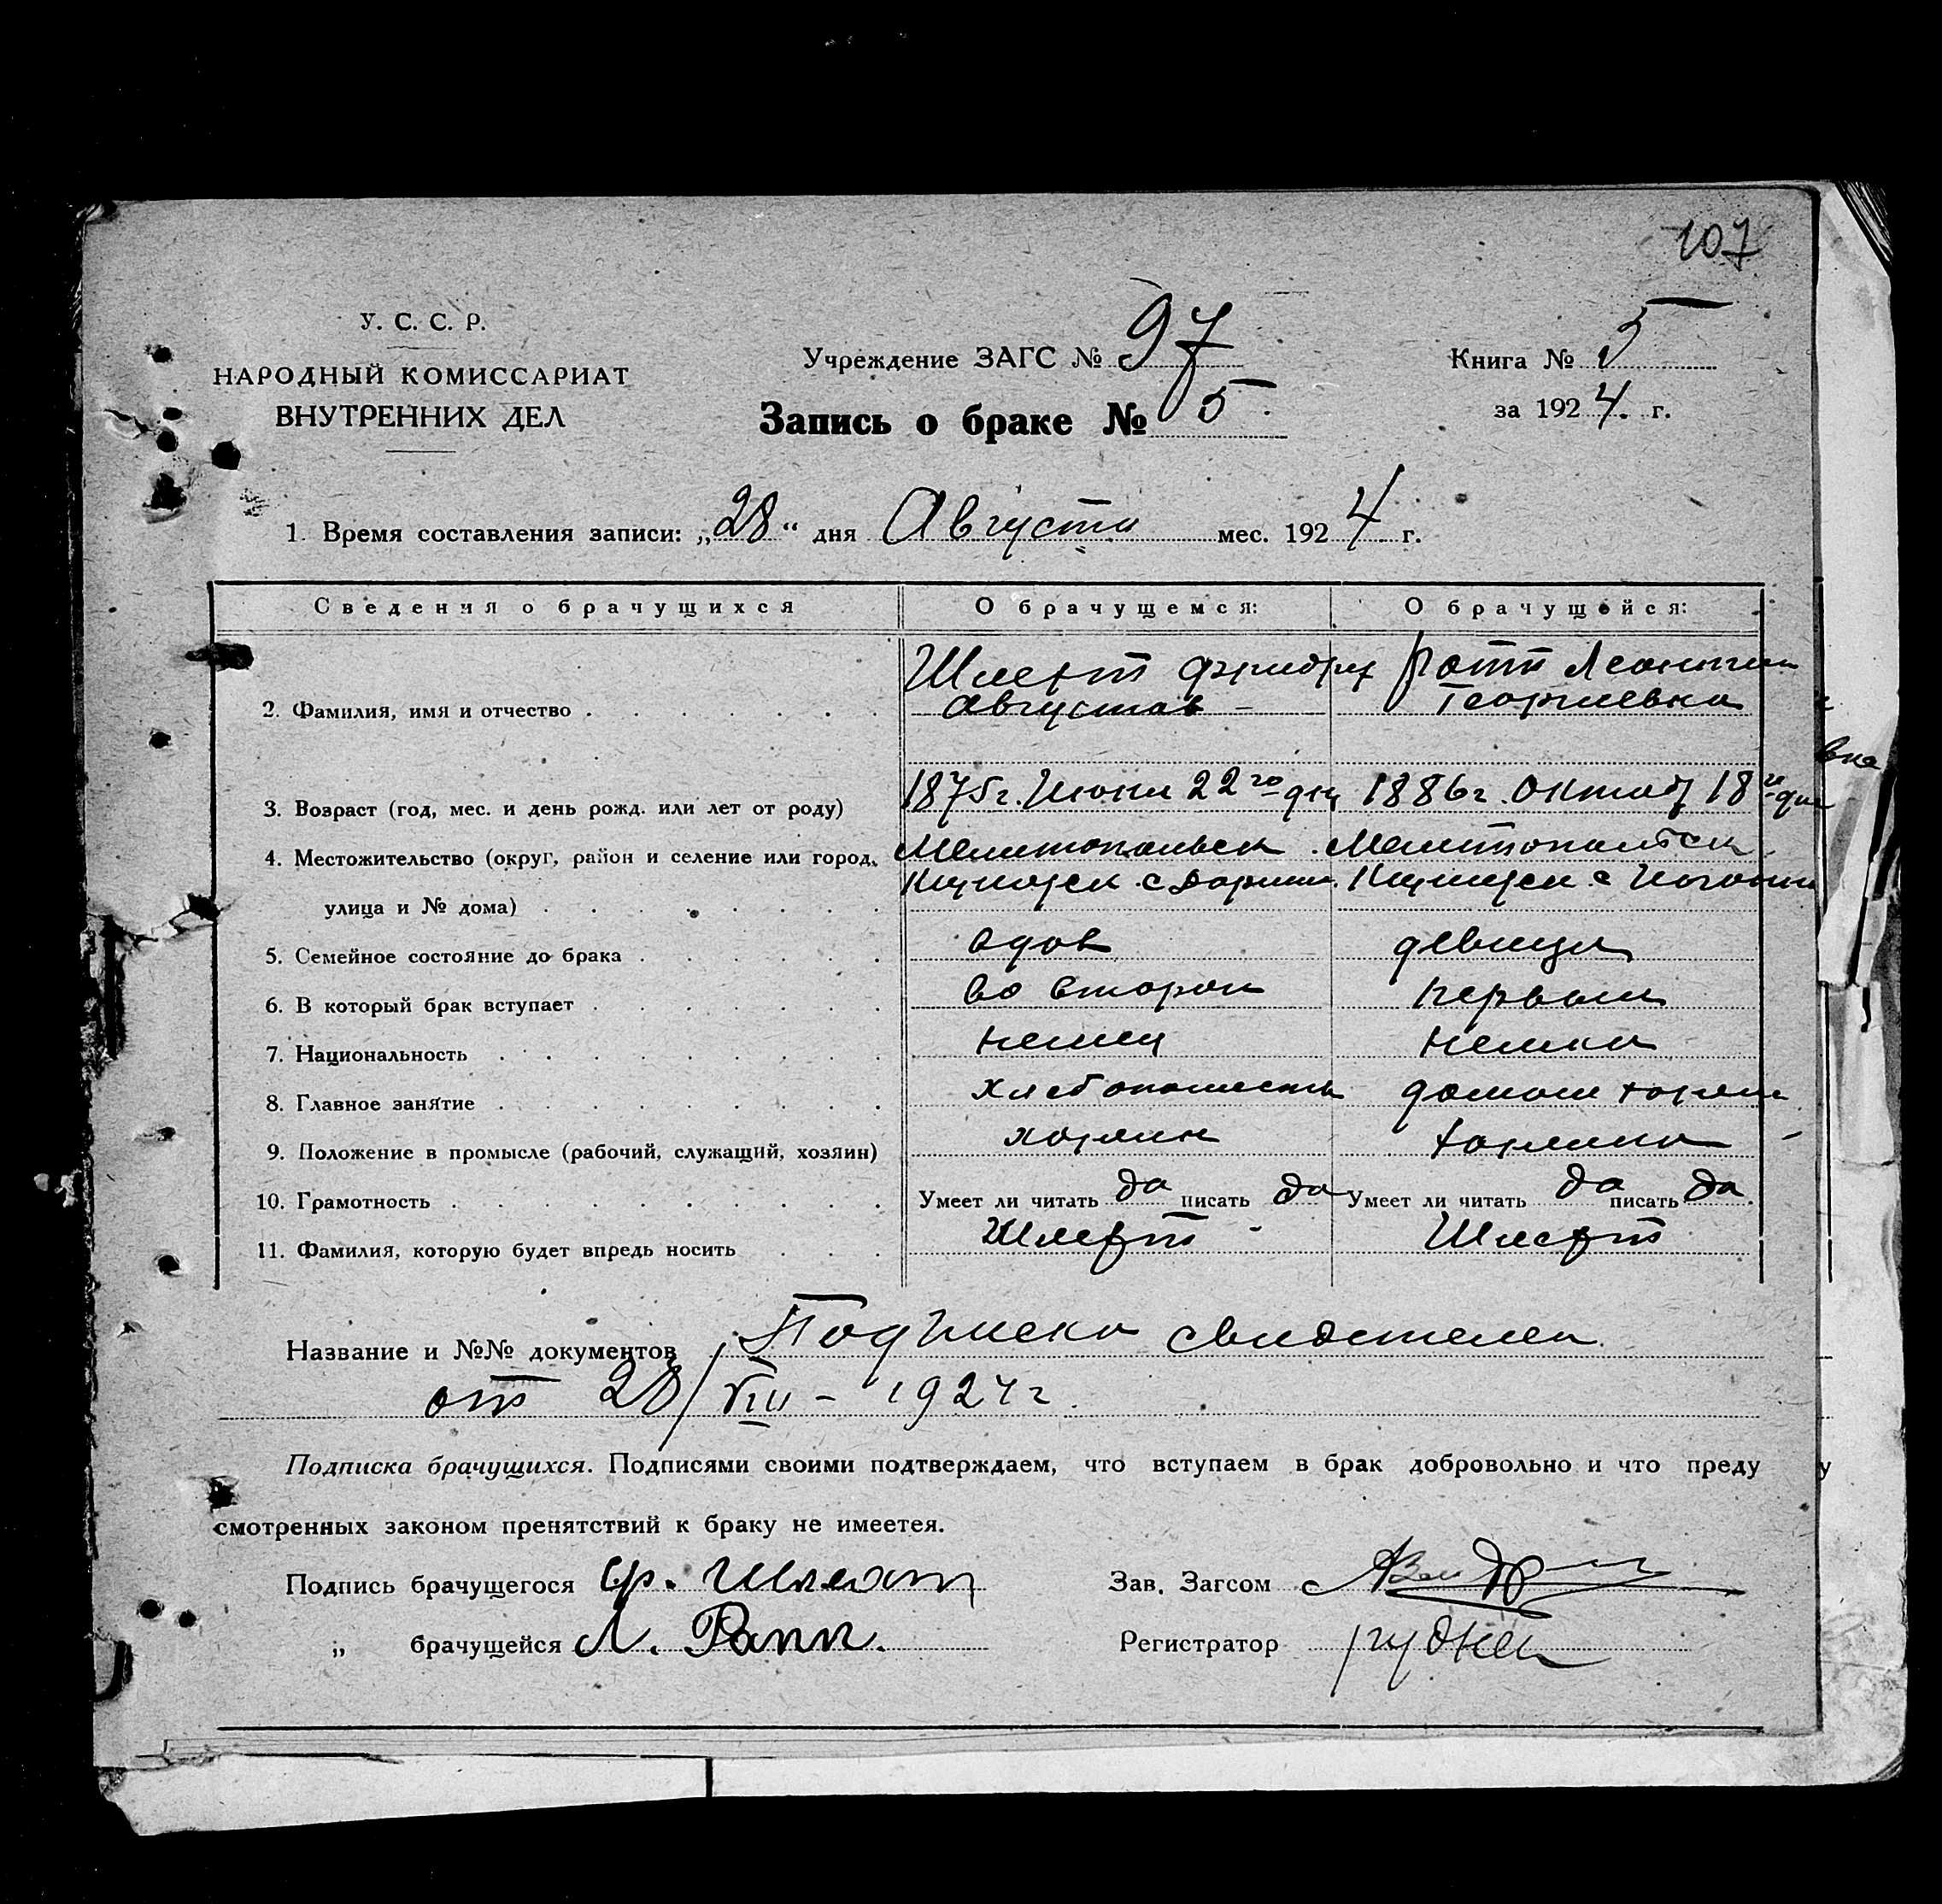 107
У. С. С. Р.
НАРОДНЫЙ КОМИССАРИАТ
ВНУТРЕННИХ ДЕЛ
Учреждение ЗАГС № 97
Книга № 5
Запись о браке № 5.
за 1924. г.
1. Время составления записи: „28“ дня Августа мес. 1924 г.
Сведения о брачущихся О брачущемся: О брачущейся:
Фридрих
2. Фамилия, имя и отчество Августов Георгиевна
3. Возраст (год, мес. и день рожд. или лет от роду) 1875г. Июня 22го дня 1886г. Октяб 18го дня
4. Местожительство (округ, район и селение или город, Мелитопольск. Мелитопольск.
улица и № дома)
5. Семейное состояние до брака вдов девица
6. В который брак вступает во второй первый
7. Национальность немец немка
8. Главное занятие хлебопашест домаш хозяй
9. Положение в промысле (рабочий, служащий, хозяин) хозяин хозяйка
10. Грамотность Умеет ли читать да писать да Умеет ли читать да писать да.
11. Фамилия, которую будет впредь носить
Название и №№ документов Подписка свидетелей
от 28/VIII - 1924 г.
Подписка брачущихся. Подписями своими подтверждаем, что вступаем в брак добровольно и что преду
смотренных законом препятствий к браку не имеетея.
Подпись брачущегося Фр. Зав. Загсом
„ брачущейся Л. Регистратор
вна
у